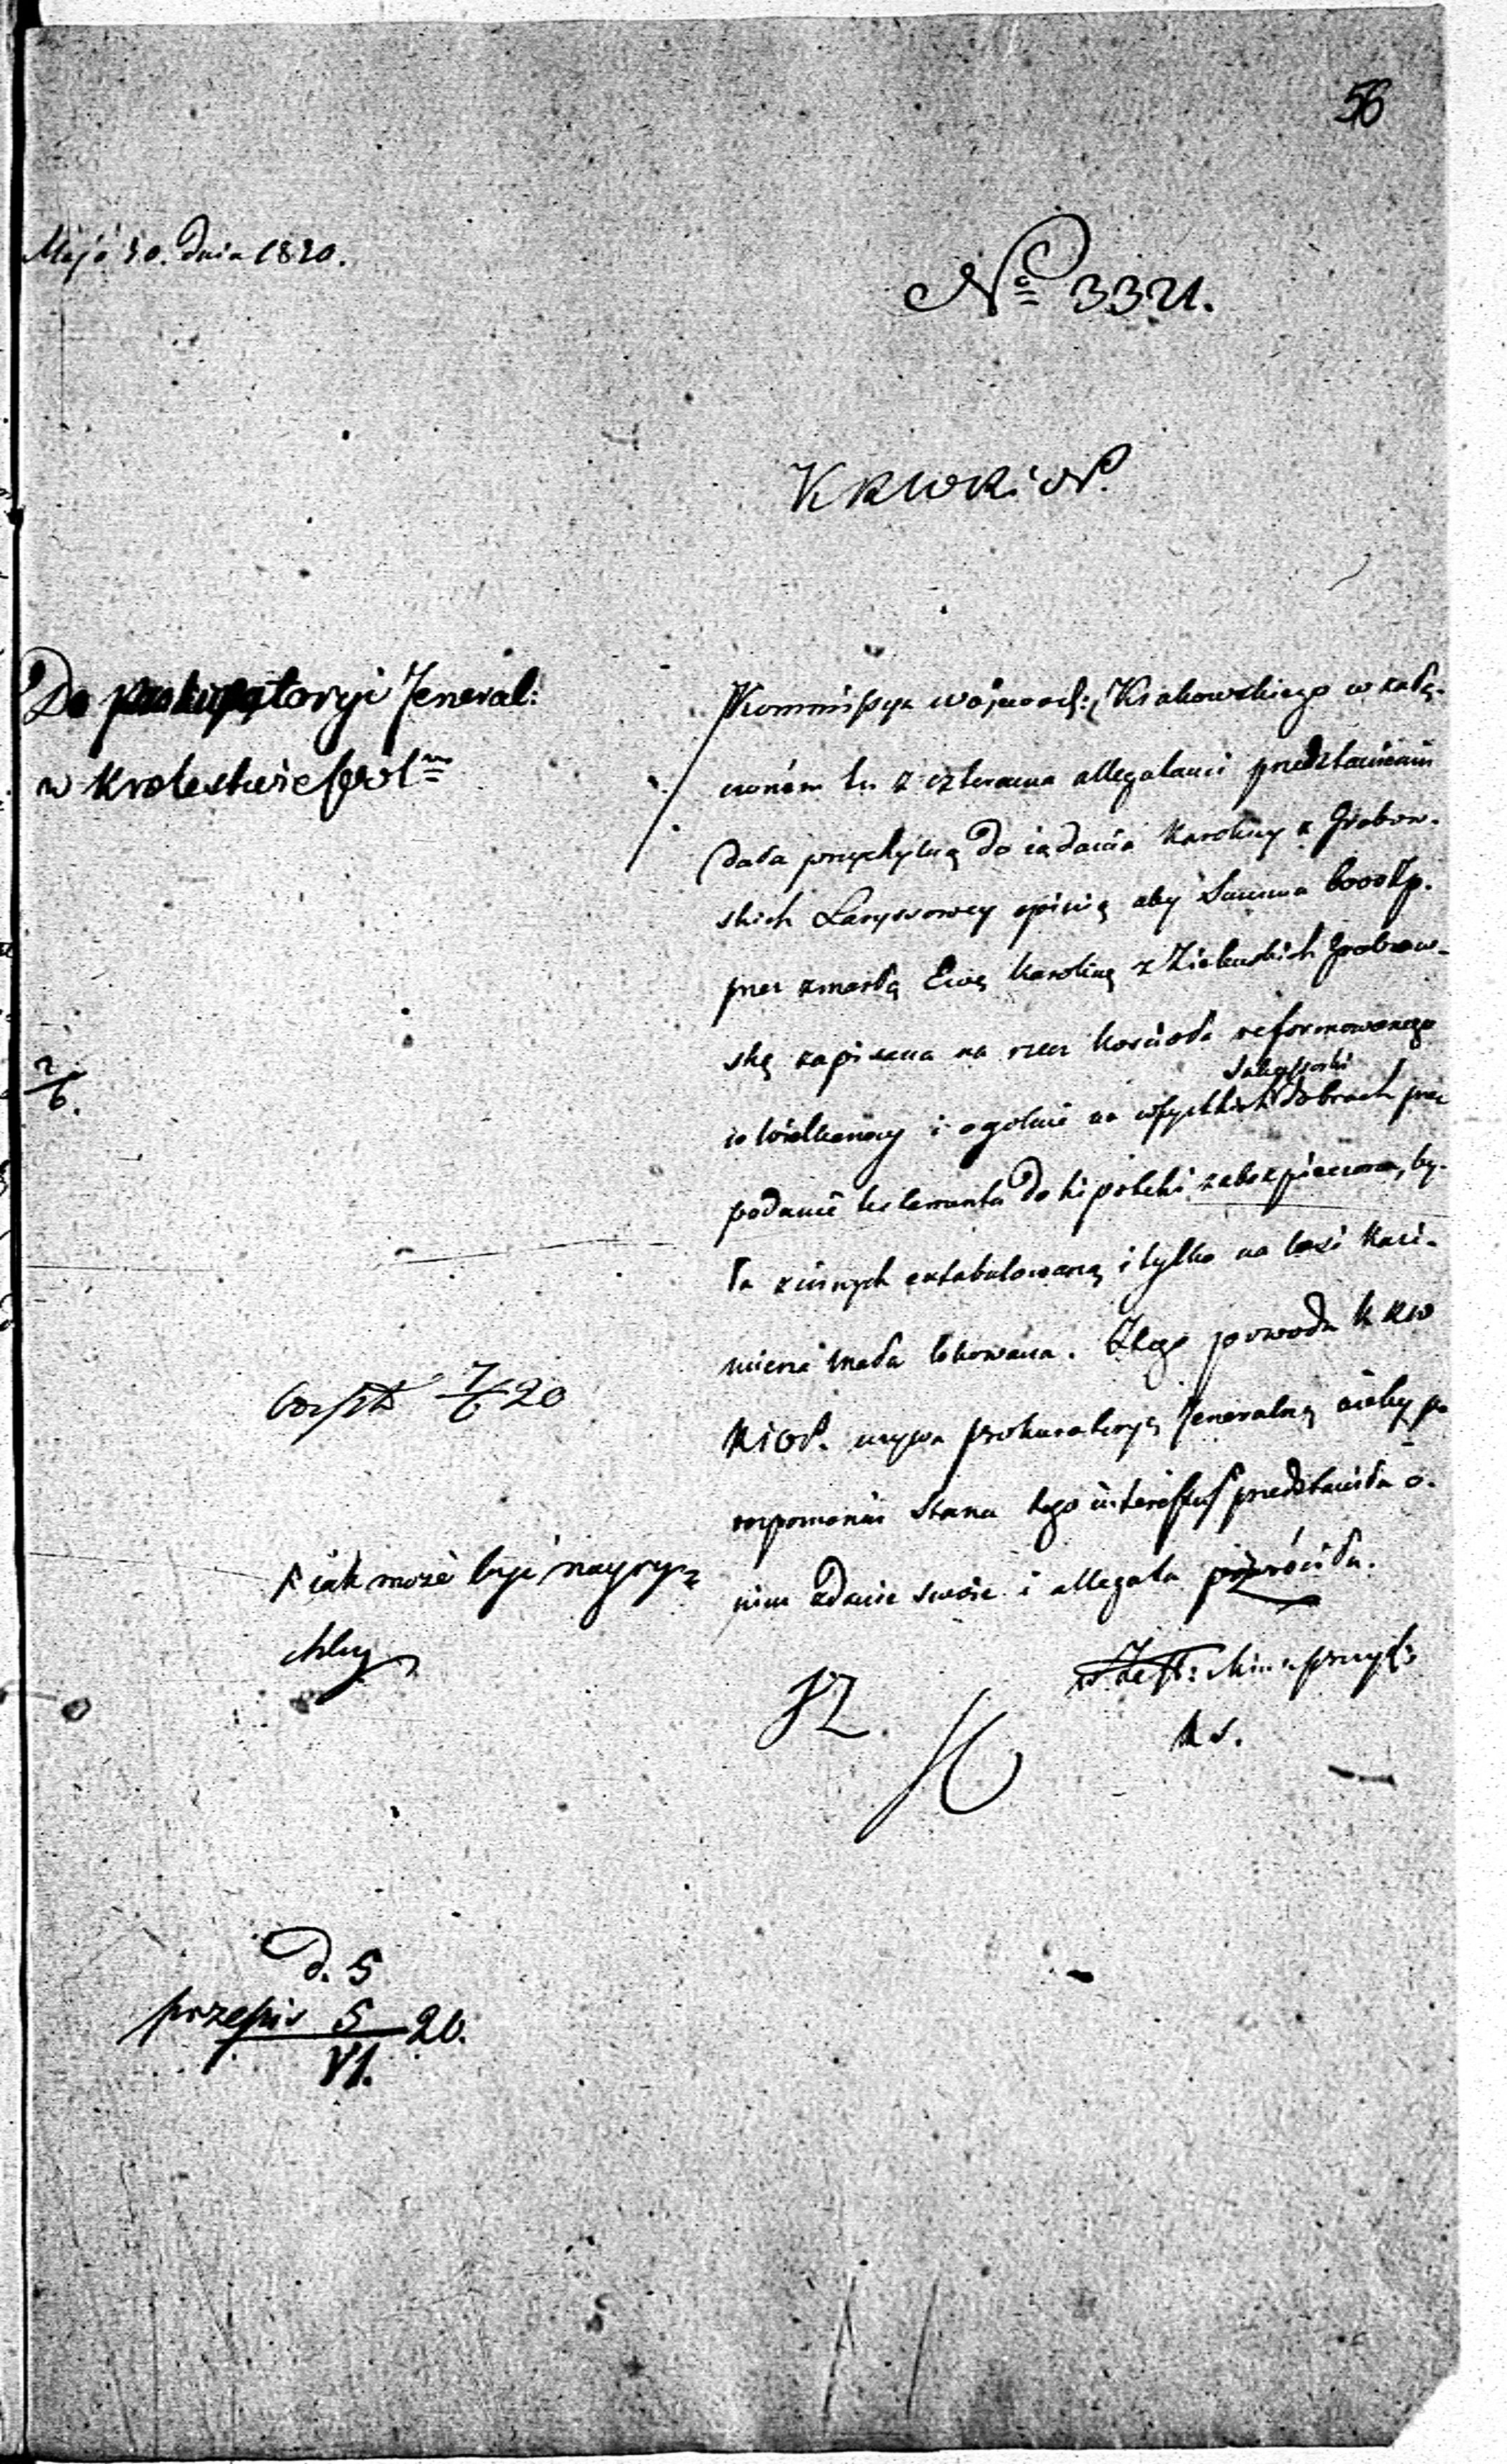 56
Maja 30. dnia 1820.
No 3321.
KRWRiOP.
Do prokuratoryi Jeneral:
w Krolestwie Pol
Kommissya Wojewodz: Krakowskiego w załą-
czoném tu z czterema allegatami przedstawieniu
dała przychylną do żądania Karoliny z Grabow-
skich Laryssowey opinią aby Summa 6000 Zp.
przez zmarłą Ewę Karolinę z Zielenskich Grabow-
skę zapisana na rzecz kościoła reformowanego
w Wielkanocy i ogolnie na wszystkich dobrach przez
podanie testamentu do hipoteki zabezpieczona, by-
ła z innych extabulowaną i tylko na wsi Kazi-
mierza Mała lokowana. Z tego powodu KRW
RiOP. wzywa prokuratoryą Jeneralną ażeby po
rozpoznaniu Stanu tego interessu przedstawiła o
nim zdanie swoie i allegata przywróciła.
2/6.
7/6 20
iak może być nayry-
chley
JZ
Min. przyd:
KS.
d. 5
przepis 5/VI. 20.